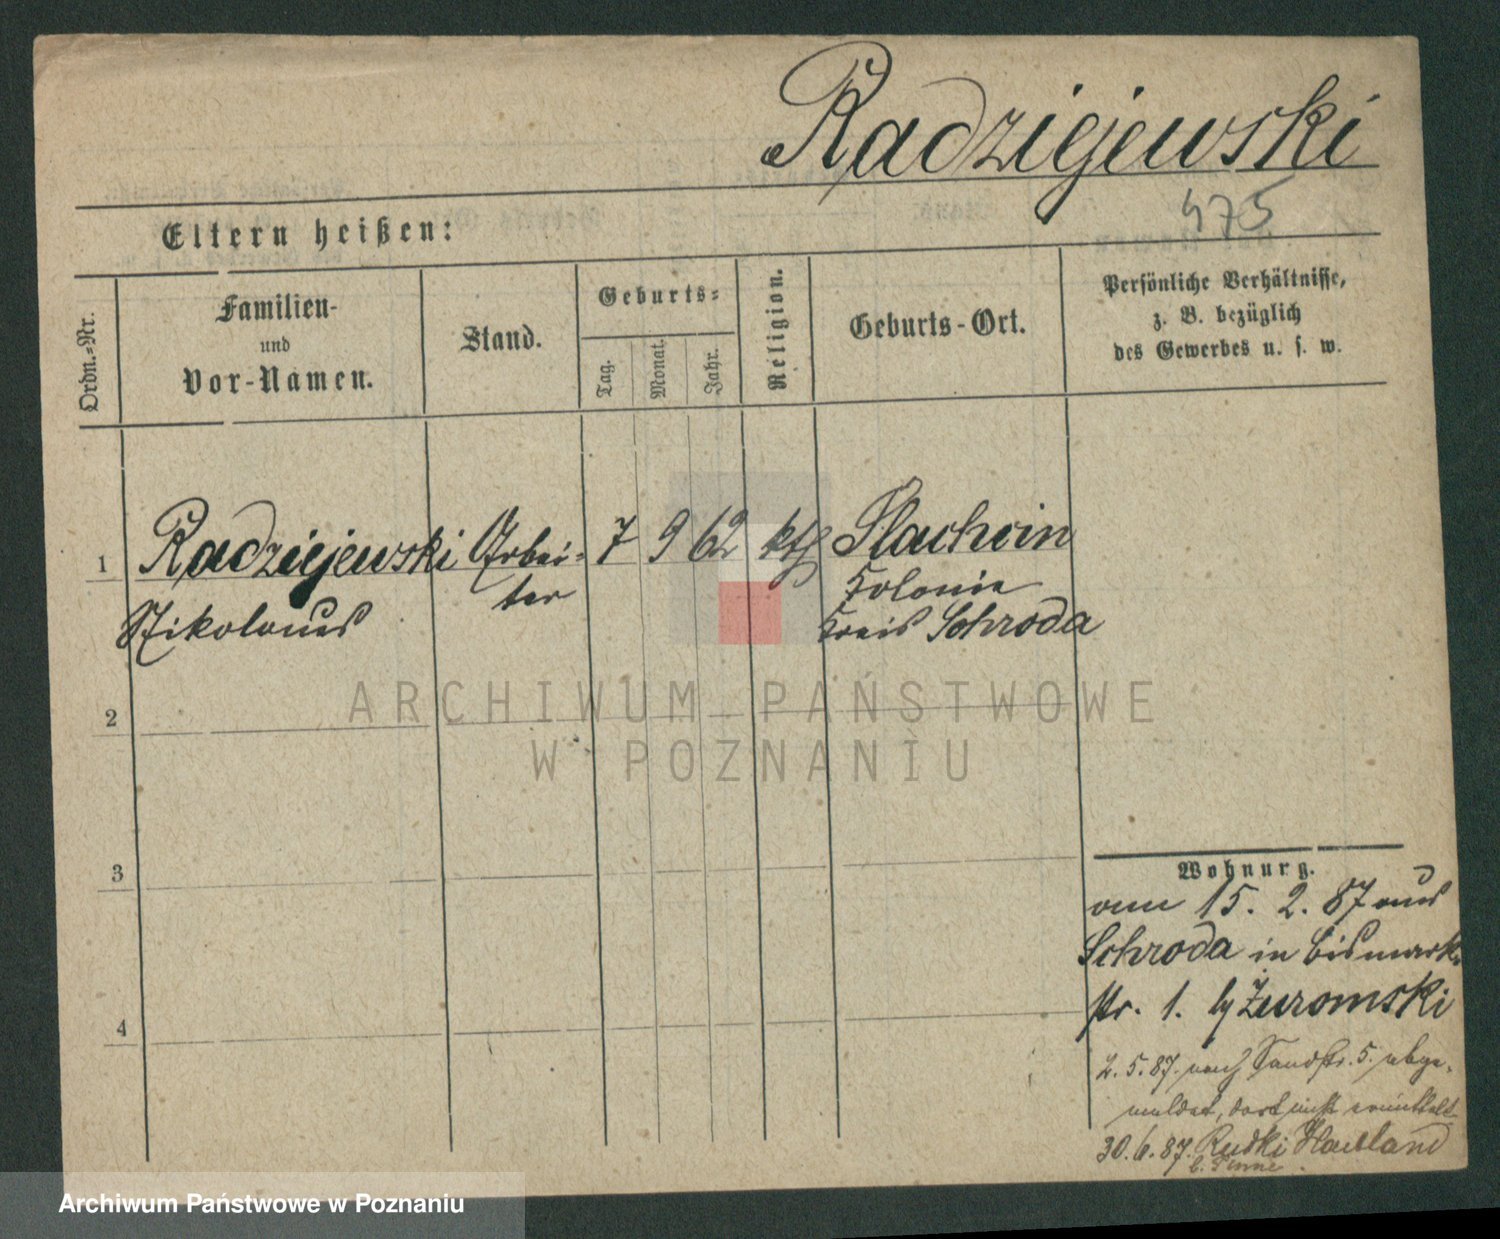 Radziejewski
475
Eltern heißen:
Ordn.=Nr.
Familien-
und
Vor-Namen.
Stand.
Geburts=
Tag.
Monat.
Jahr.
Religion.
Geburts-Ort.
Persönliche Verhältnisse,
z. B. bezüglich
des Gewerbes u. s. w.
1 Radziejewski Arbei= 7 9 62 kth Slachcin
Nikolaus ter Kolonie
Kreis Schroda
2
ARCHIWUM PAŃSTWOWE
W POZNANIU
3
4
Wohnung.
am 15. 2. 87 aus
Schroda in Bismark
str. 1. by Żuromski
2. 5. 87. nach Sandstr. 5. abge-
meldet, dort nicht ermittelt
30. 6. 87. Rudki Hauland
b. Pinne
Archiwum Państwowe w Poznaniu